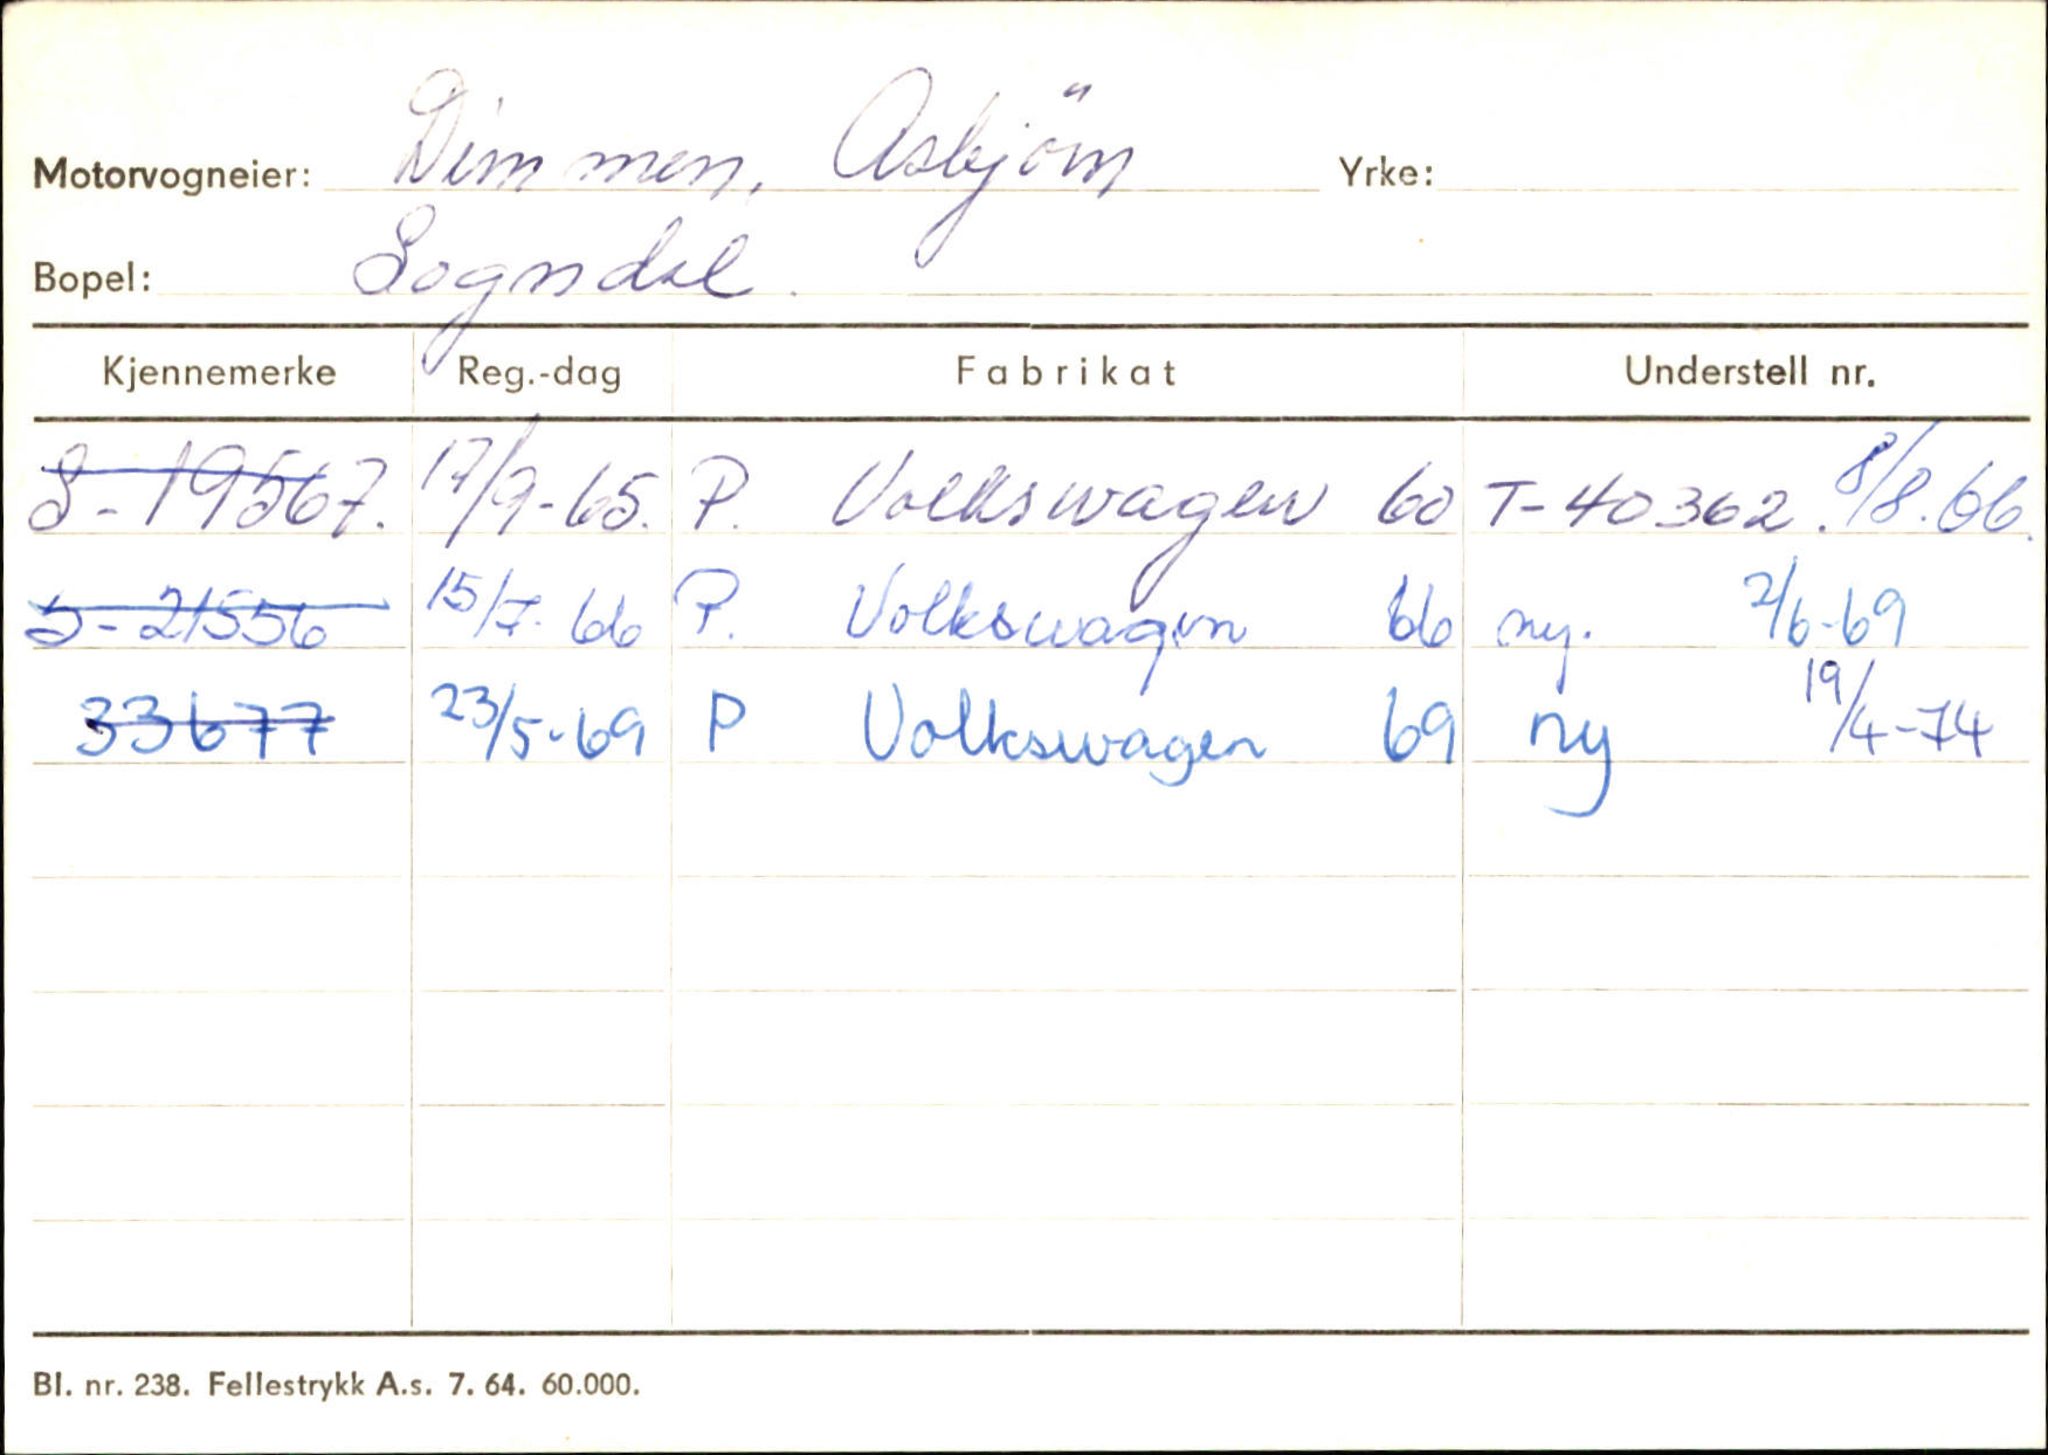 Motorvogneier: Dimmen, Asbjörn Yrke:
Bopel: Sogndal.
Kjennemerke Reg.-dag Fabrikat Understell nr.
S-19567. 17/9-65. P. Volkswagen 60 T-40362. 8/8.66.
S-21556 15/7-66 P. Volkswagen 66 ny. 2/6-69
33677 23/5-69 P Volkswagen 69 ny 19/4-74
Bl. nr. 238. Fellestrykk A.s. 7. 64. 60.000.